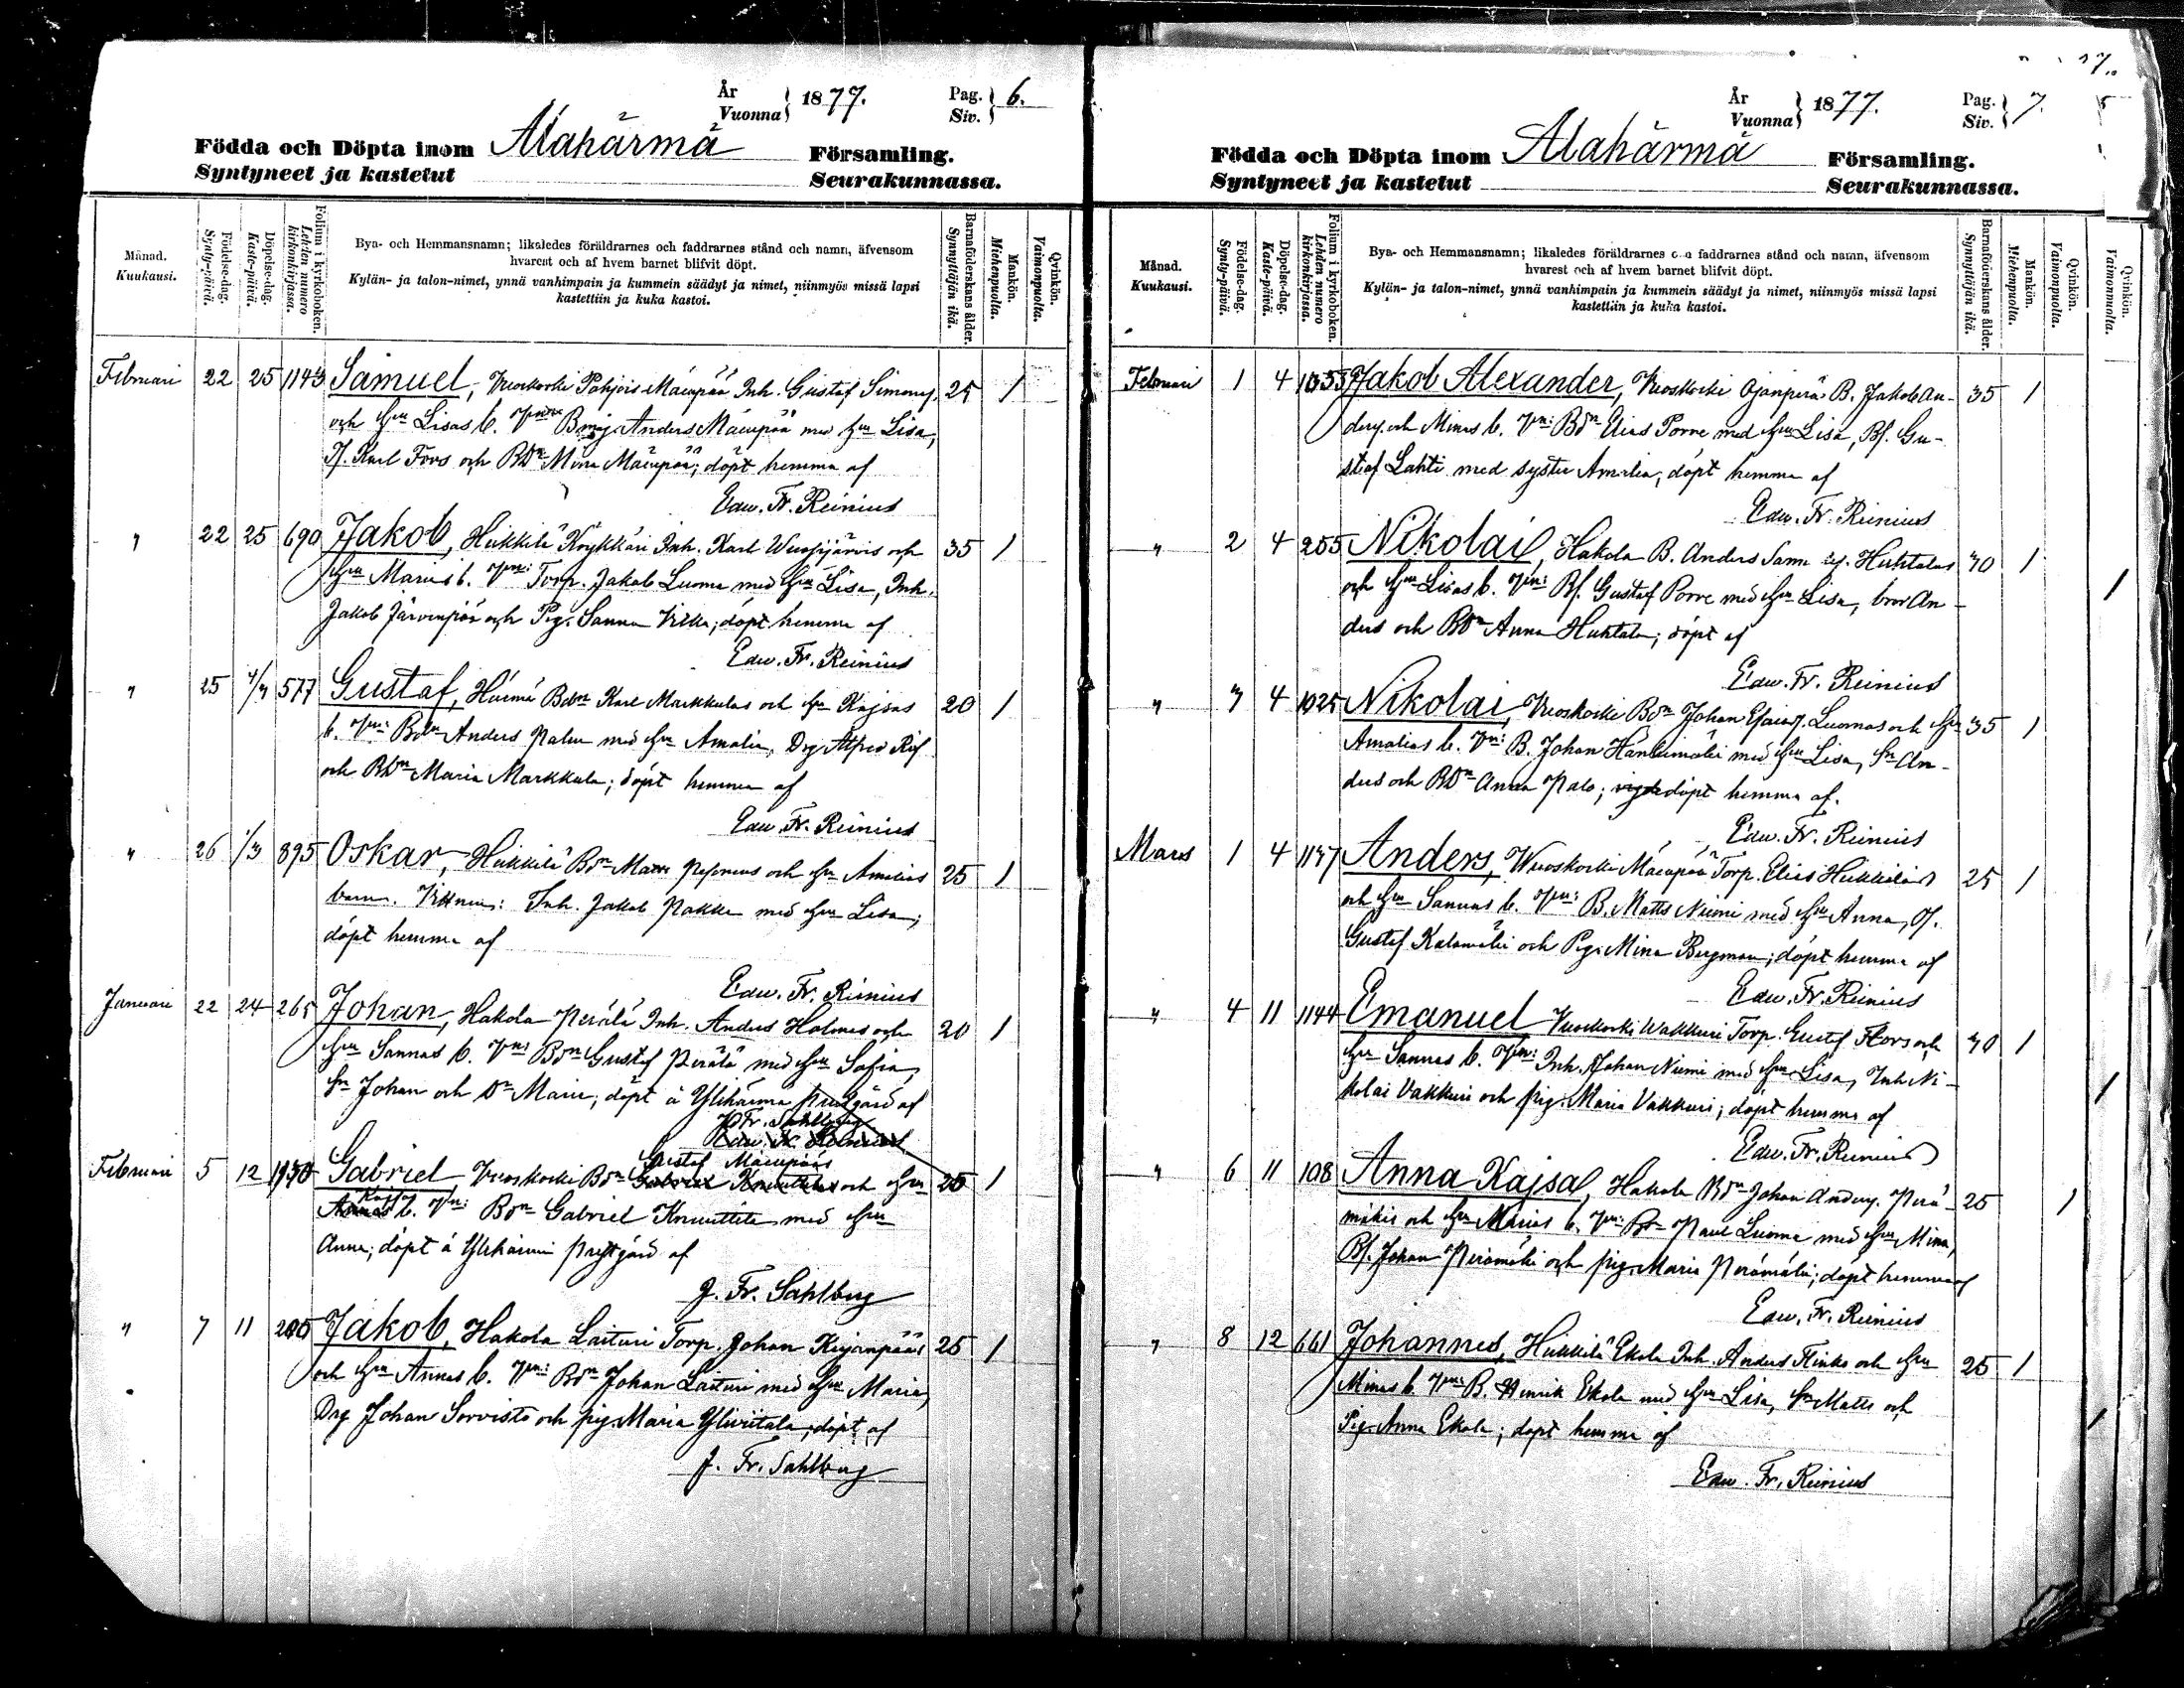 År
Vuonna } 1877.
Pag.
Siv. } 6.
Födda och Döpta inom Alahärmä Församling.
Syntyneet ja kastetut Seurakunnassa.
Månad.
Kuukausi.
Födelse-dag.
Synty-päivä.
Döpelse-dag.
Kaste-päivä.
Folium i kyrkoboken.
Lehden numero kirkonkirjassa.
Bya- och Hemmansnamn; likaledes föräldrarnes och faddrarnes stånd och namn, äfvensom
hvarest och af hvem barnet blifvit döpt.
Kylän- ja talon-nimet, ynnä vanhimpain ja kummein säädyt ja nimet, niinmyös missä lapsi
kastettiin ja kuka kastoi.
Barnaföderskans ålder.
Synnyttäjän ikä.
Mankön.
Miehenpuolta.
Qvinkön.
Vaimonpuolta.
Februari 22 25 1143 Samuel, Wuoskoski Pohjois Mäenpää Inh. Gustaf Simons. 25 1
och Hu Lisas b. Vn: Anders Mäenpää med Hu Lisa,
Karl Fors och BDr Mina Mäenpää; döpt hemma af
Edw. Fr. Reinius
" 22 25 690 Jakob, Hukkila Köykkäri Inh. Karl och 35 1
Hu Marias b. Vn: Torp. Jakob Luoma med Hu Lisa, Inh.
Jakob Järvenpää och Pig. Sanna; döpt hemma af
Edw. Fr. Reinius
" 25 4/3 577 Gustaf, Härmä Bdn Karl Markkulas och Hu Kajsas 20 1
b. Vn: Bdn Anders Palm med Hu Amalia, Dg Alfred
och BDr Maria Markkula; döpt hemma af
Edw. Fr. Reinius
" 26 1/3 895 Oskar, Hukkila Bdn och Hu Amalias 25 1
barn. Vittnen: Inh. Jakob Pakka med Hu Lisa;
döpt hemma af
Edw. Fr. Reinius
Januari 22 24 265 Johan, Hakola Perälä Inh. Anders Holmes och 20 1
Hu Sannas b. Vn: Bdn Gustaf Perälä med Hu Sofia,
Sn Johan och Dr Maria; döpt å Ylihärmä prestgård af
J. Fr. Sahlberg
Edw. Fr. Reinius
Gustaf Mäenpääs
Februari 5 12 Gabriel, Wuoskoski Bdn Gabriel Knuuttilas och Hu 20 1
Kajsas
Annas b. Vn: Bdn Gabriel Knuuttila med Hu
Anna; döpt å Ylihärmä prestgård af
J. Fr. Sahlberg
" 7 11 205 Jakob, Hakola Laituri Torp. Johan Keijanpääs 25 1
och Hu Annas b. Vn: Bdn Johan Laituri med Hu Maria,
Drg Johan Sorvisto och pig. Maria Yliviitala; döpt af
J. Fr. Sahlberg
År
Vuonna } 1877.
Pag.
Siv. } 7.
Födda och Döpta inom Alahärmä Församling.
Syntyneet ja kastetut Seurakunnassa.
Månad.
Kuukausi.
Födelse-dag.
Synty-päivä.
Döpelse-dag.
Kaste-päivä.
Folium i kyrkoboken.
Lehden numero kirkonkirjassa.
Bya- och Hemmansnamn; likaledes föräldrarnes och faddrarnes stånd och namn, äfvensom
hvarest och af hvem barnet blifvit döpt.
Kylän- ja talon-nimet, ynnä vanhimpain ja kummein säädyt ja nimet, niinmyös missä lapsi
kastettiin ja kuka kastoi.
Barnaföderskans ålder.
Synnyttäjän ikä.
Mankön.
Miehenpuolta.
Qvinkön.
Vaimonpuolta.
Qvinkön.
Vaimonpuolta.
Februari 1 4 Jakob Alexander, Wuoskoski Ojanperä B. Jakob An- 35 1
ders. och Minas b. Vn: Bdn Elias Porre med Hu Lisa, Bs. Gu-
staf Lahti med syster Amalia; döpt hemma af
Edw. Fr. Reinius
" 2 4 255 Nikolai, Hakola B. Anders Huhtalas 30 1
och Hu Lisas b. Vn: Bs. Gustaf Porre med Hu Lisa, bror An-
ders och BDr Anna Huhtala; döpt af
Edw. Fr. Reinius
" 3 4 1025 Nikolai, Wuoskoski Bdn Johan Esaias. Luomas och Hu 35 1
Amalias b. Vn: B. Johan Hanhimäki med Hu Lisa, Sn An-
ders och BDr Anna Palo; döpt hemma af.
Edw. Fr. Reinius
Mars 1 4 1137 Anders, Wuoskoski Mäenpää Torp. Elias Hukkilas 25 1
och Hu Sannas b. Vn: B. Matts Niemi med Hu Anna,
Gustaf Kalamäki och Pig. Mina Bergman; döpt hemma af
Edw. Fr. Reinius
" 4 11 1144 Emanuel Wuoskoski Wakkuri Torp. Gustaf Fors och 30 1
Hu Sannas b. Vn: Inh. Johan Niemi med Hu Lisa, Inh. Ni-
kolai Vakkuri och pig. Maria Vakkuri; döpt hemma af
Edw. Fr. Reinius
" 6 11 108 Anna Kajsa, Hakola Bdn Johan Anders. Perä- 25 1
mäkis och Hu Marias b. Vn: Bdn Paul Luoma med Hu Mina,
Bs. Johan Perämäki och pig. Maria Perämäki; döpt hemma af
Edw. Fr. Reinius
" 8 12 661 Johannes, Hukkila Ekola Inh. Anders Flinks och Hu 25 1
Minas b. Vn: B. Henrik Ekola med Hu Lisa, Sn Matts och
Pig. Anna Ekola; döpt hemma af
Edw. Fr. Reinius